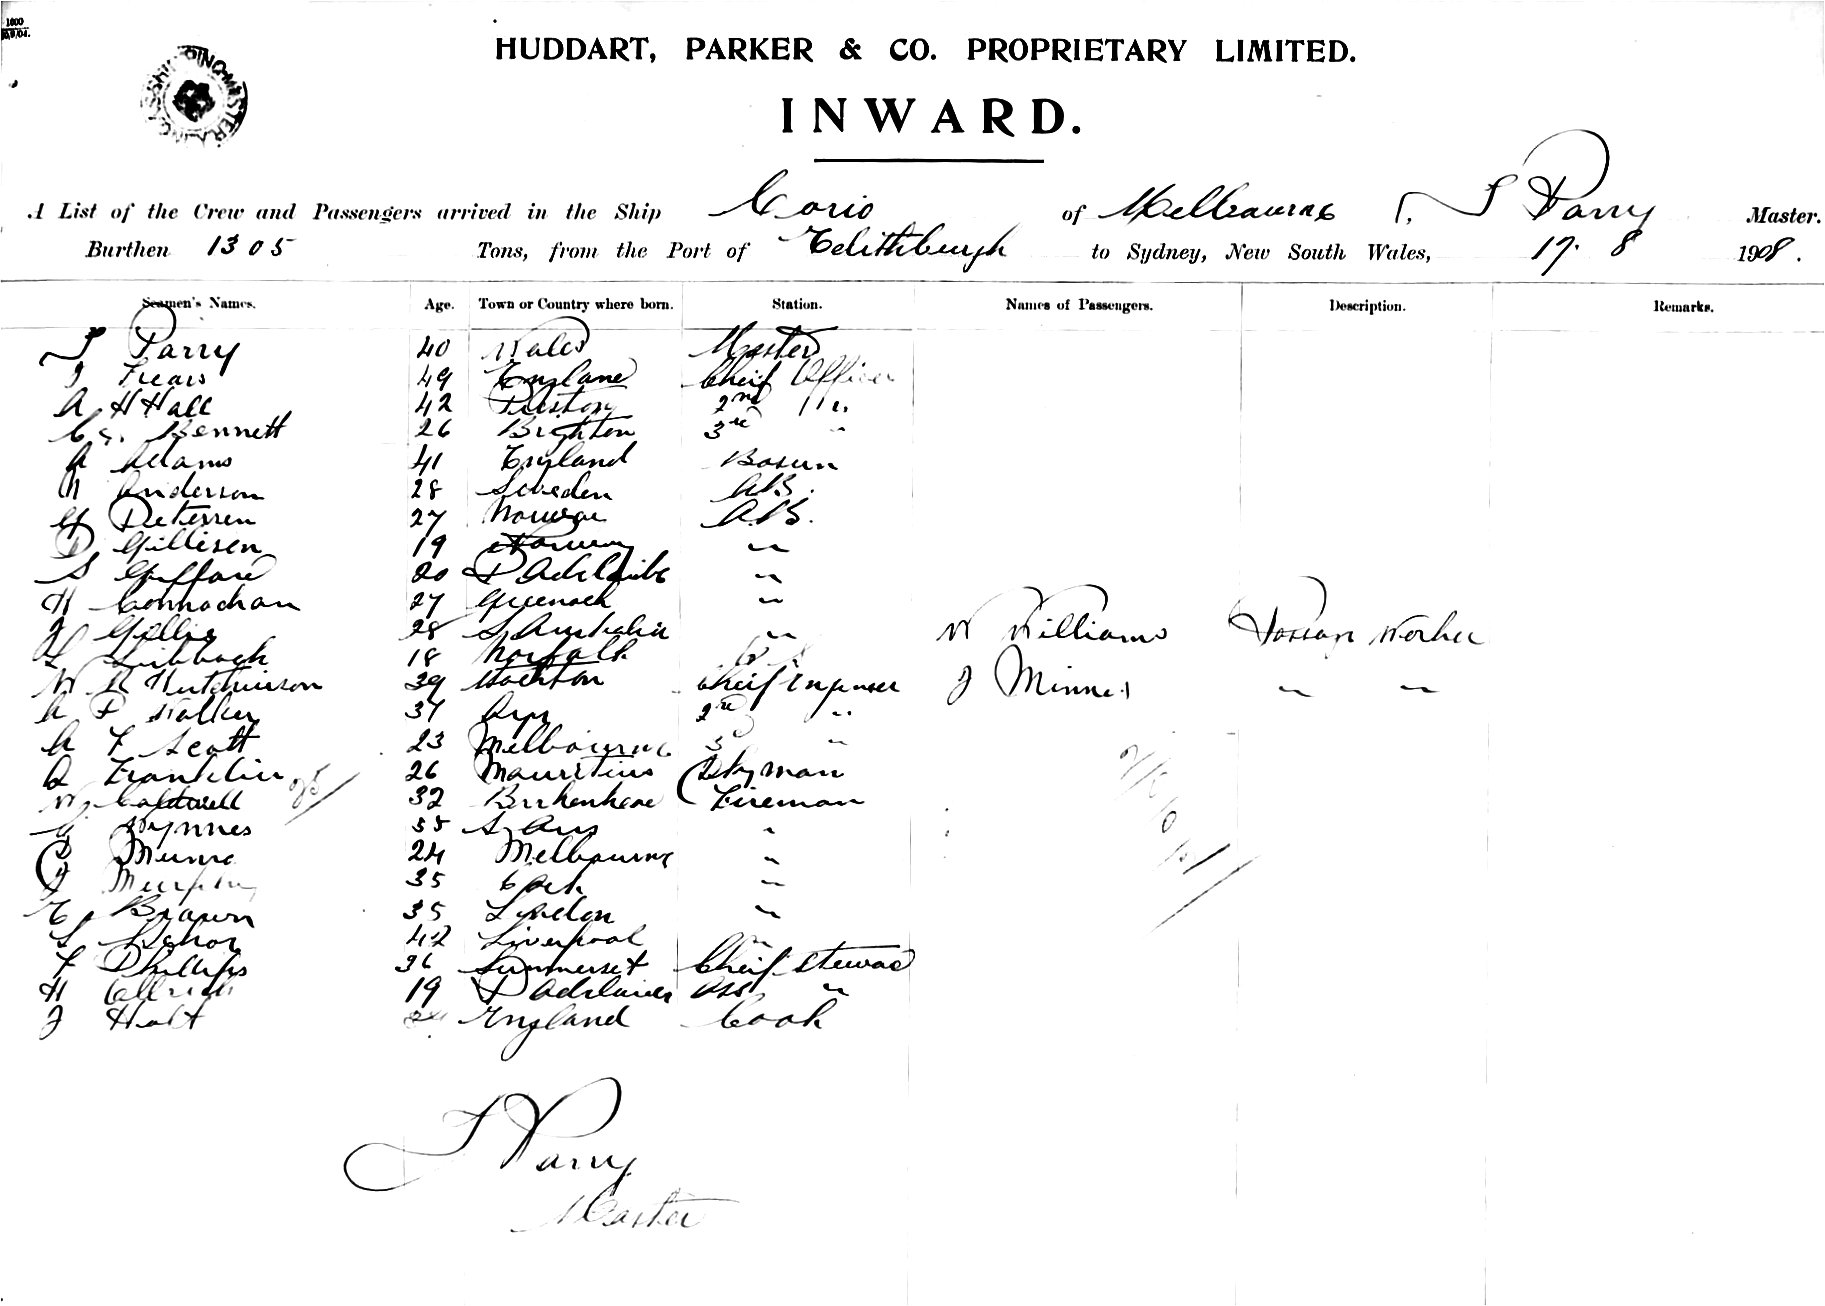 1800
HUDDART, PARKER & CO. PROPRIETARY LIMITED.
INWARD.
A List of the Crew and Passengers arrived in the Ship Corio of Melbourne, Parry Master.
Burthen 1305 Tons, from the Port of Edithburgh to Sydney, New South Wales, 17. 8 1908.
Seamen's Names. Age. Town or Country where born. Station. Names of Passengers. Description. Remarks.
Parry 40 Wales Master
49 England Cheif Officer
A H Hall 42 Preston 2nd "
Bennett 26 Brighton 3rd "
A Adams 41 England Bosun
Anderson 28 Sweden AB.
Petersen 27 A.B.
Gillisen 19 Norway "
S Giffard 20 P Adelaide "
H Connachan 27 Greenock "
J Gillis 28 S Australia " W Williams Worker
18 Norfolk
W R Hutchinson 39 Cheif Engineer J "
A P Walker 37 Ayr 2nd "
A F Scott 23 Melbourne 3 "
Franklin 26 Mauritius Dkyman
W Caldwell 32 Birkenhead Fireman
Wynnes 35 S Aus "
Munro 24 Melbourne "
Murphy 35 Cork "
E Brown 35 London "
42 Liverpool "
F Phillips 36 Summerset Cheif Steward
H 19 P Adelaide Ass "
J Holt England Cook
Parry
Master